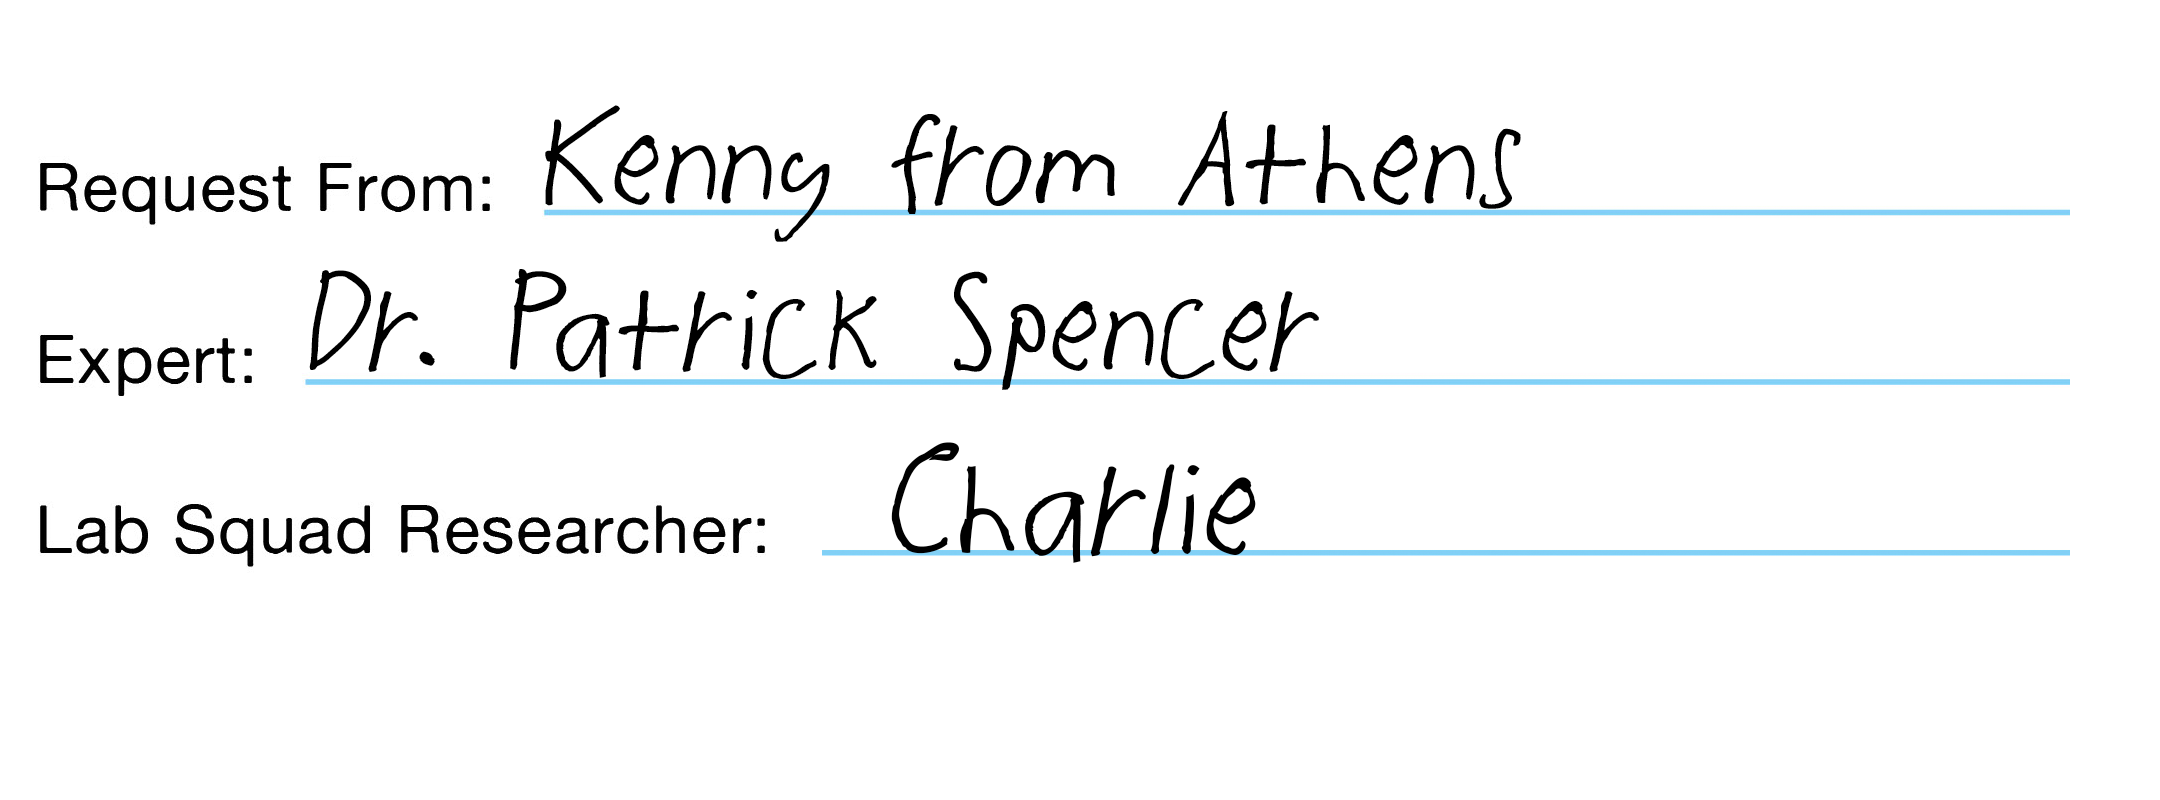 Request From: Kenny from Athens
Expert: Dr. Patrick Spencer
Lab Squad Researcher: Charlie